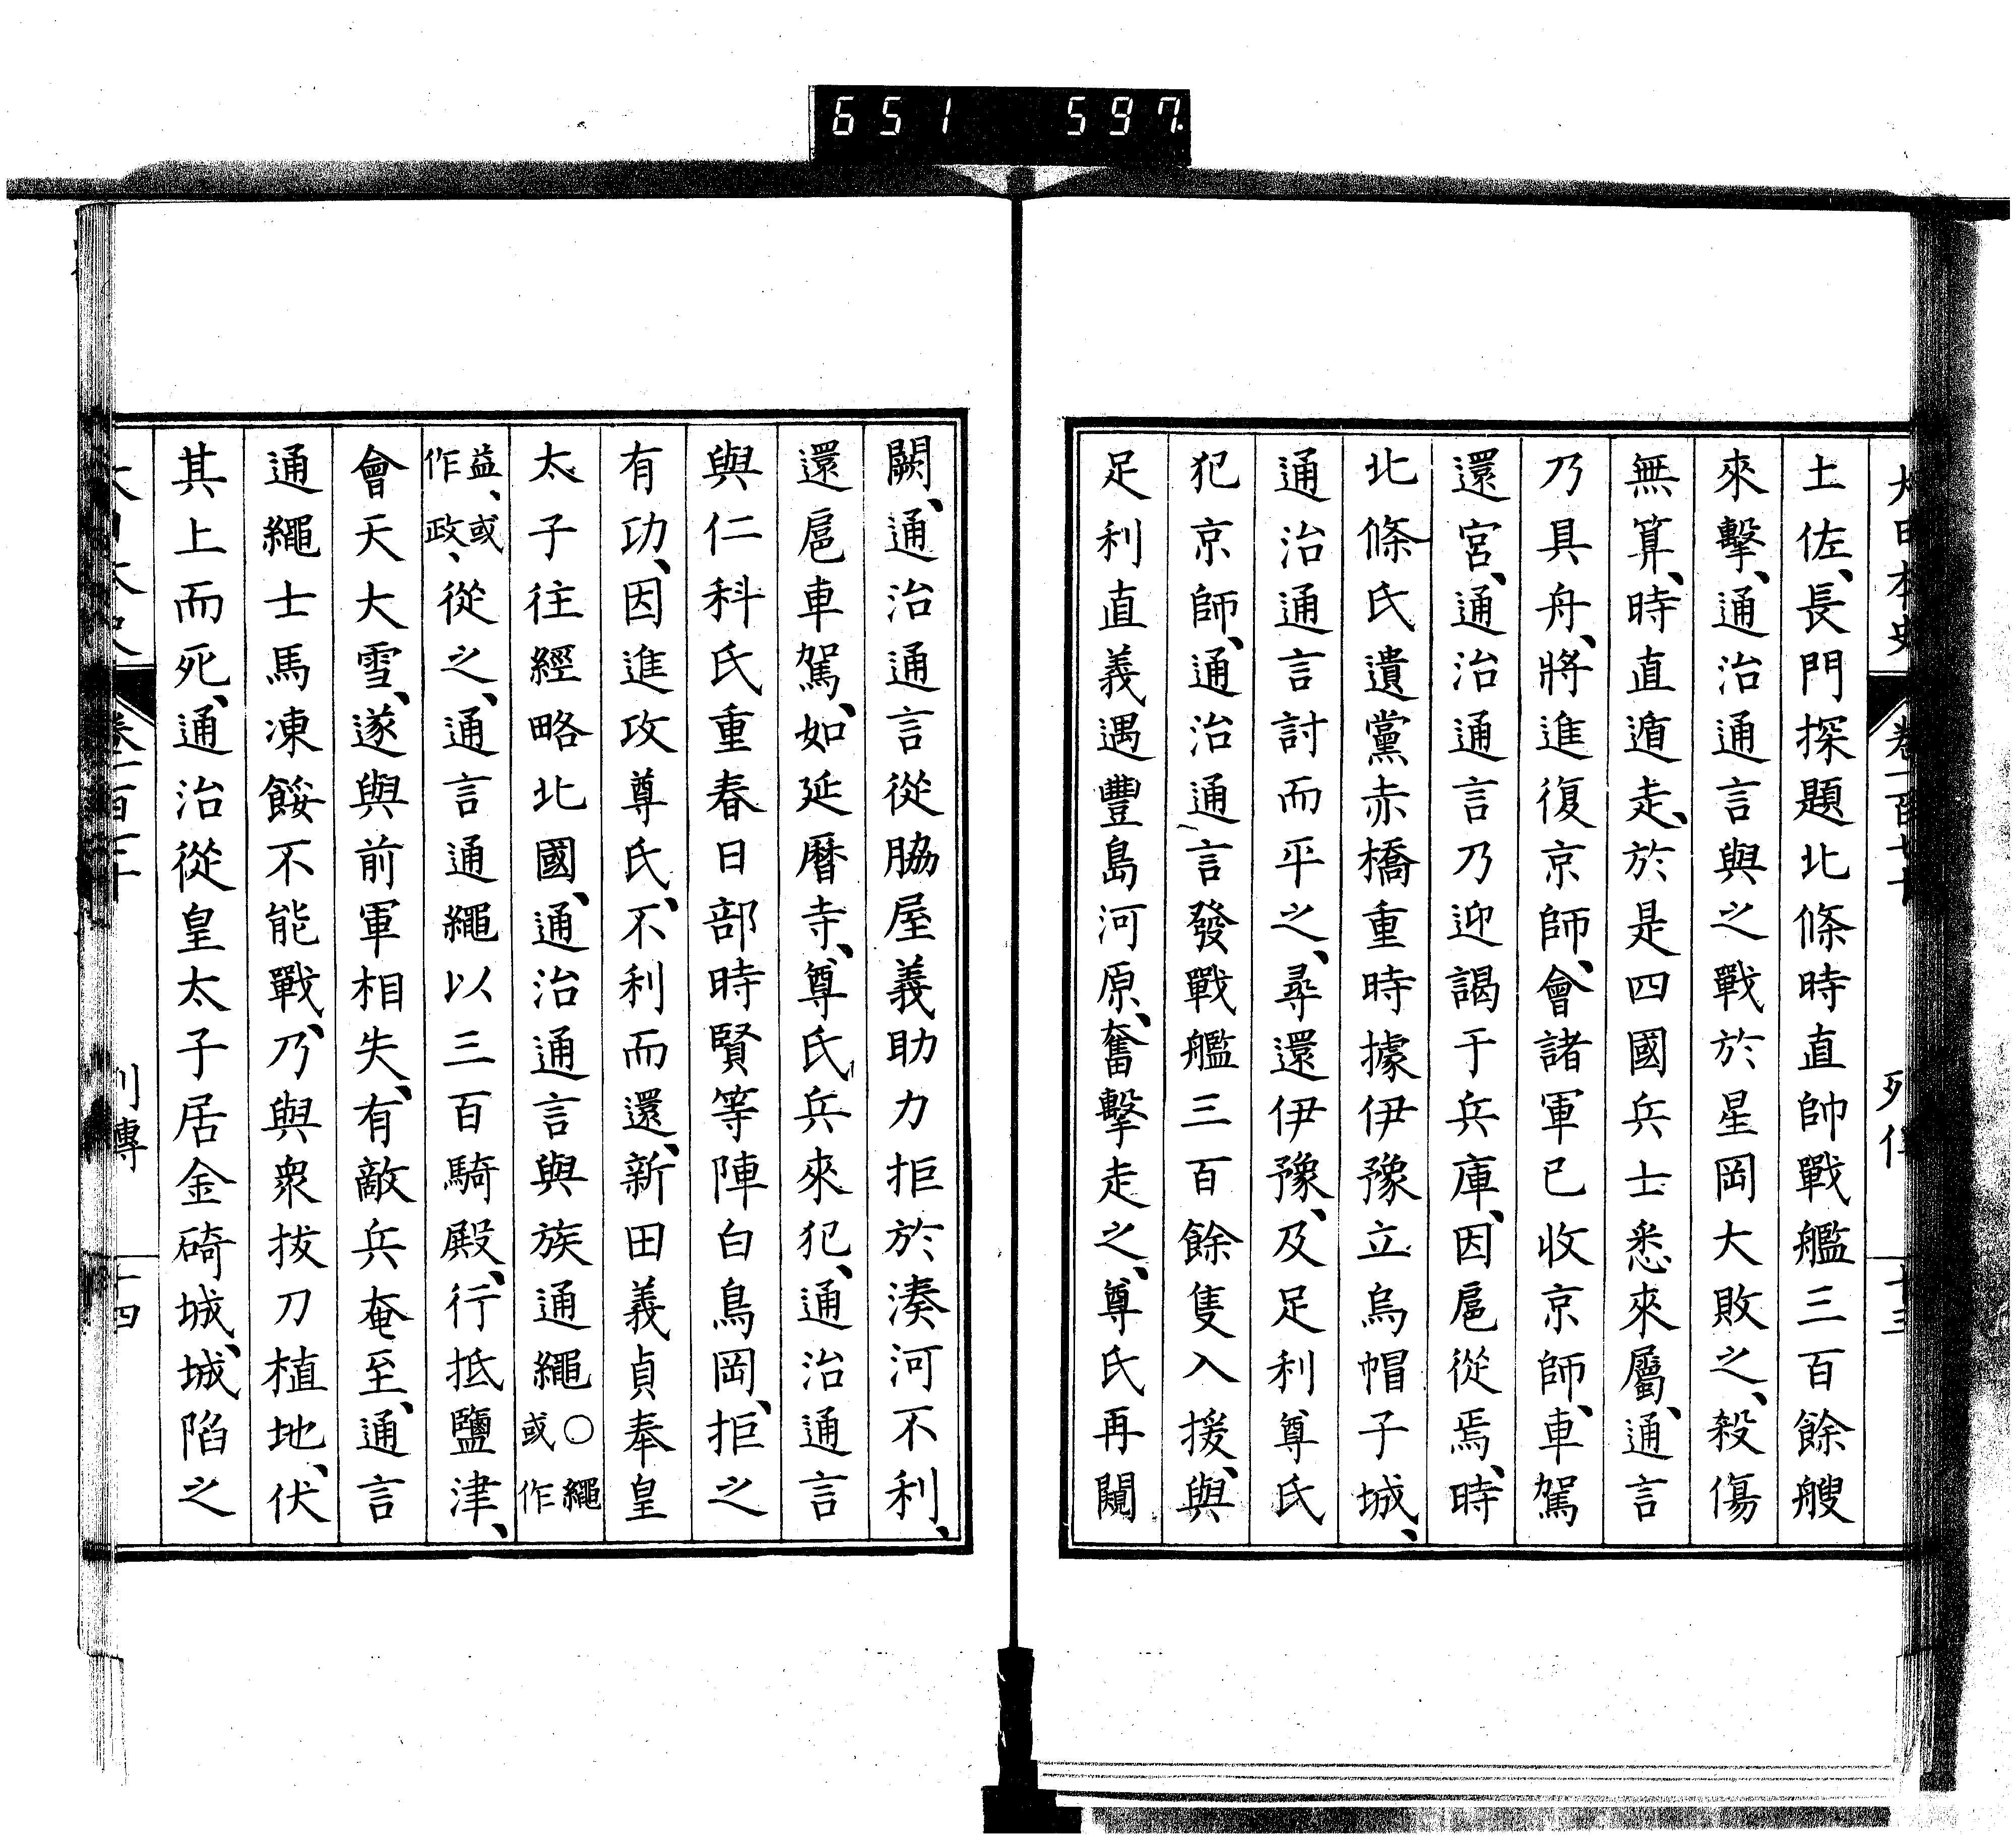 651 597
土佐、長門探題北條時直帥戰艦三百餘艘
來擊、通治通言與之戰於星岡大敗之、殺傷
無算、時直遁走、於是四國兵士悉來屬、通言
乃具舟、將進復京師、會諸軍已收京師、車駕
還宮、通治通言乃迎謁于兵庫、因扈從焉、時
北條氏遺黨赤橋重時據伊豫立烏帽子城、
通治通言討而平之、尋還伊豫、及足利尊氏
犯京師、通治通言發戰艦三百餘隻入援、與
足利直義遇豐島河原、奮擊走之、尊氏再闚
闕、通治通言從脇屋義助力拒於湊河不利、
還扈車駕、如延曆寺、尊氏兵來犯、通治通言
與仁科氏重春日部時賢等陣白鳥岡、拒之
有功、因進攻尊氏、不利而還、新田義貞奉皇
太子往經略北國、通治通言與族通繩○繩或作
益、或作政、從之、通言通繩以三百騎殿、行抵鹽津、
會天大雪、遂與前軍相失、有敵兵奄至、通言
通繩士馬凍餒不能戰、乃與衆拔刀植地、伏
其上而死、通治從皇太子居金碕城、城陷之